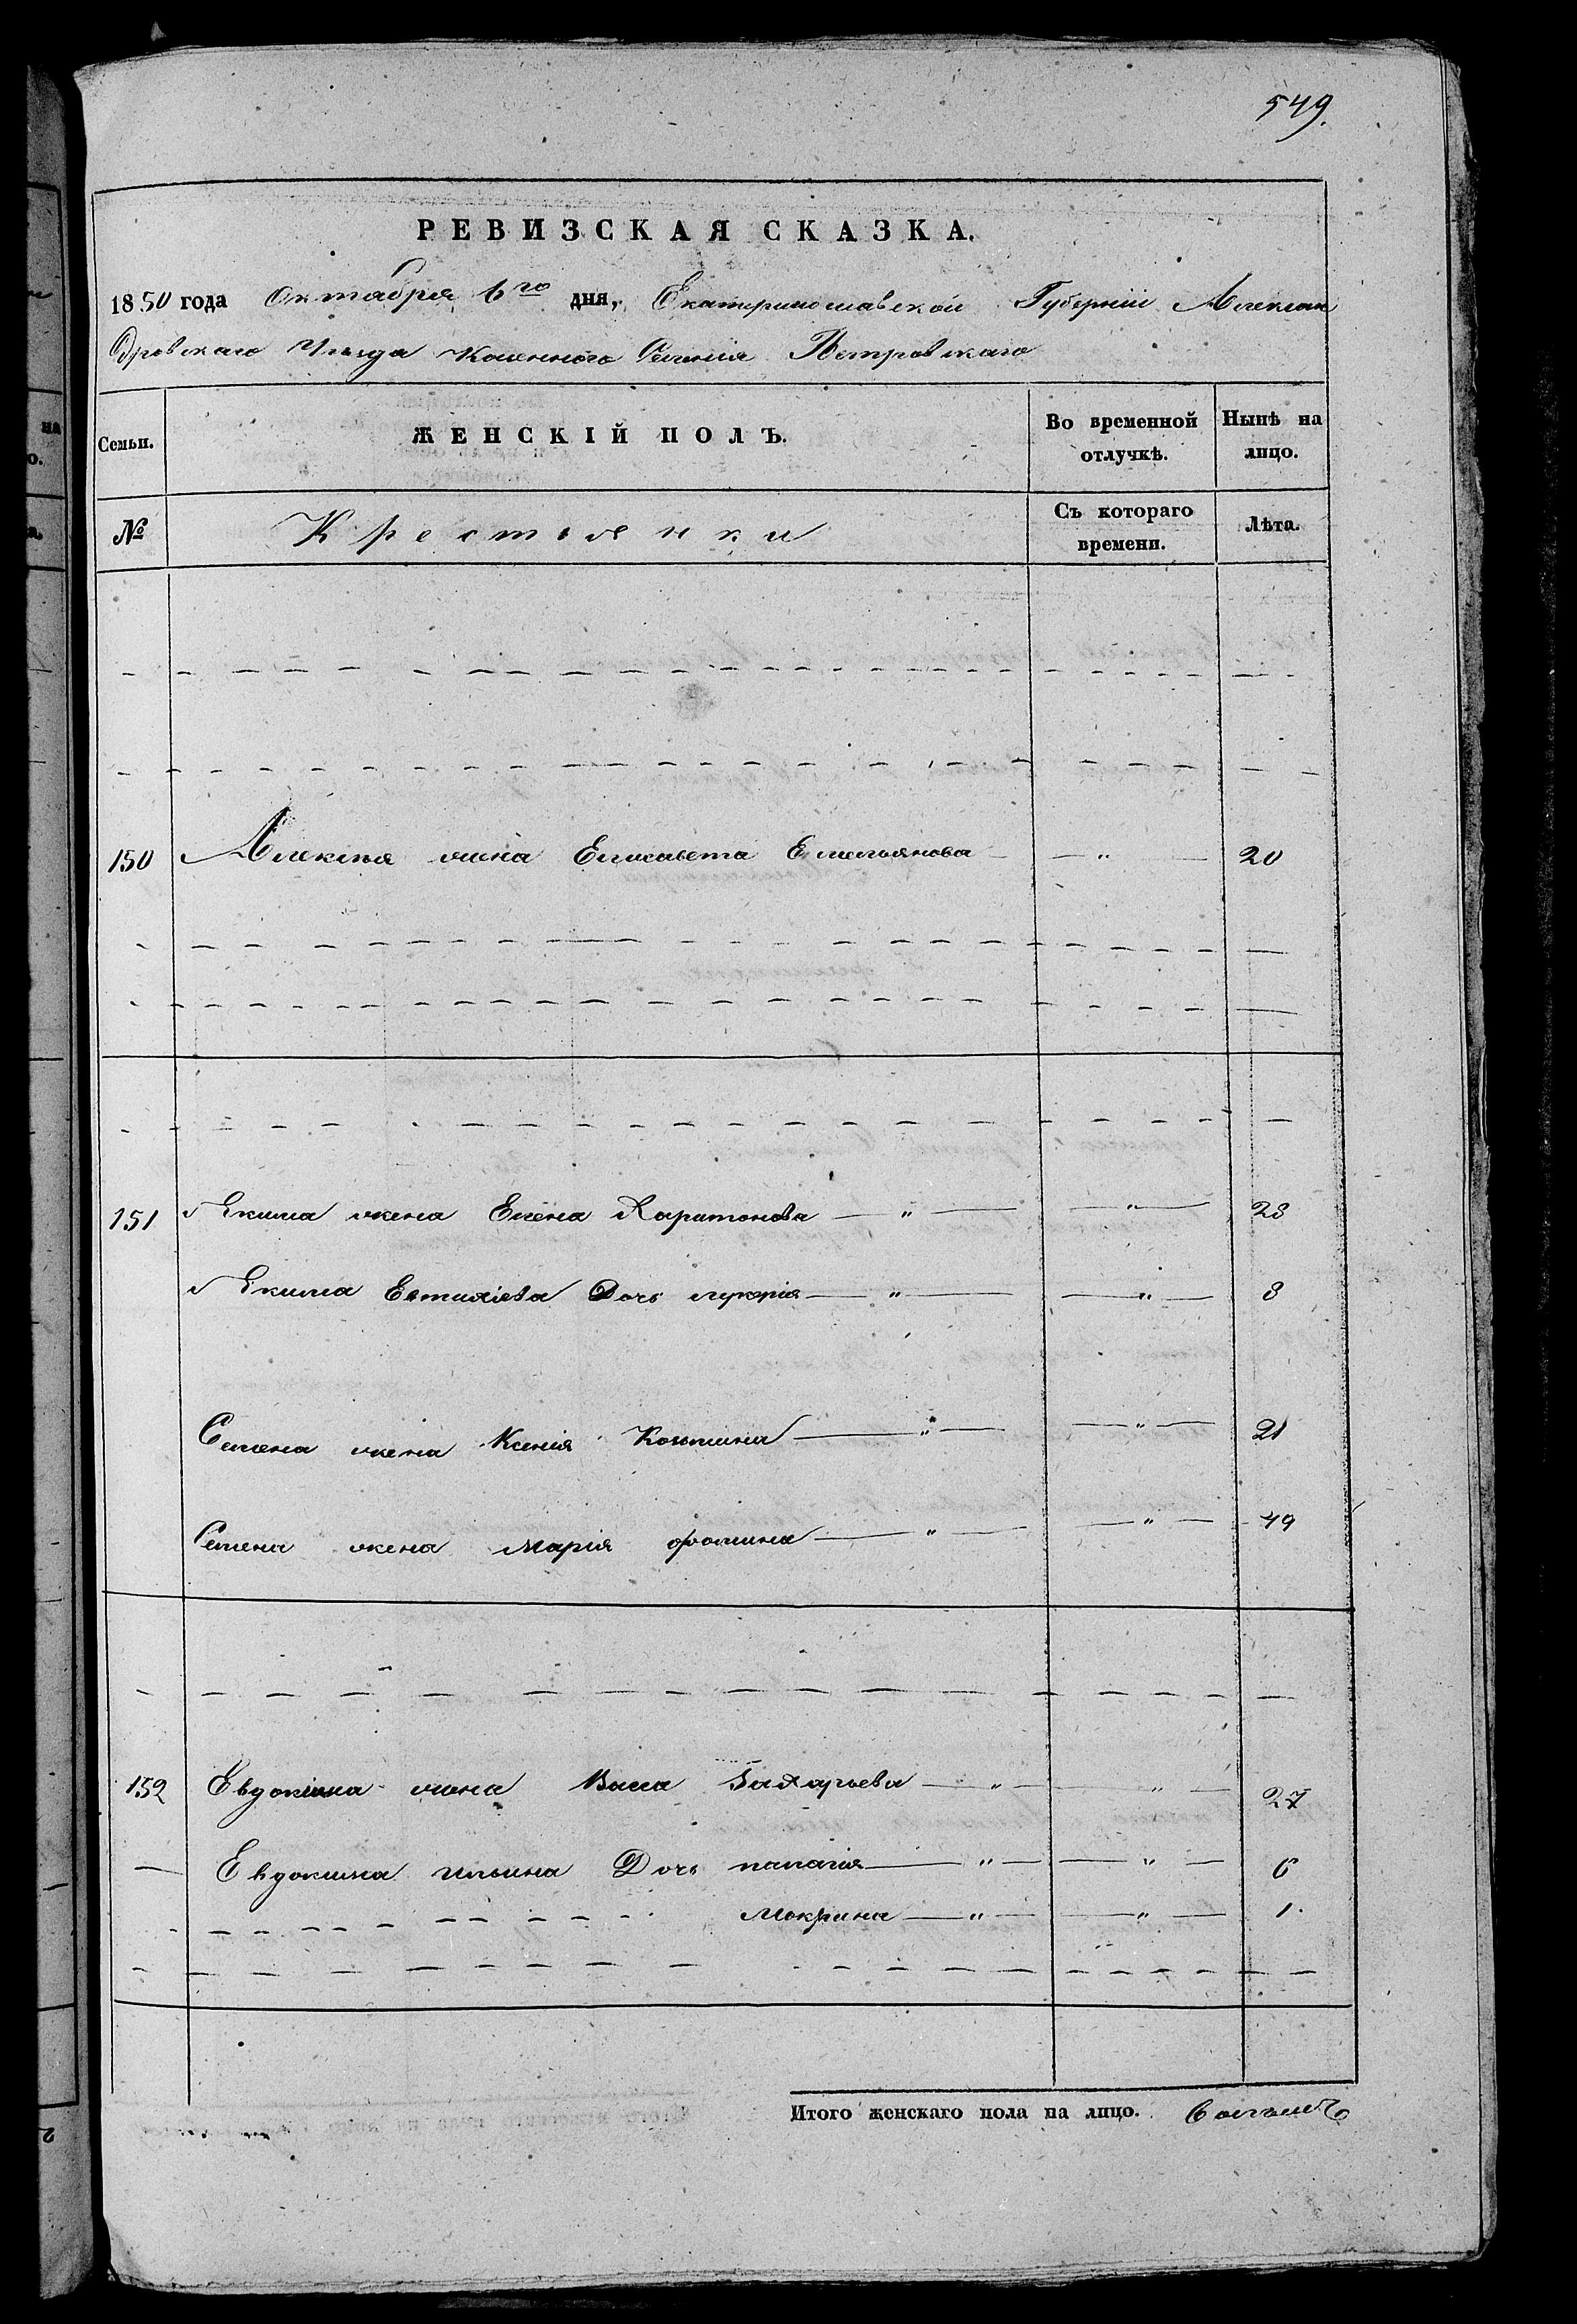 549.
РЕВИЗСКАЯ СКАЗКА.
1850 года Октября 6го дня, Екатеринославской Губерніи Алексан
Дровскаго Уѣзда Казенного Селенія Петровскаго
Семьи. ЖЕНСКІЙ ПОЛЪ. Во временной отлучкѣ. Нынѣ на лицо.
№ Крестьянки Съ котораго времени. Лѣта.
150 Алексѣя жена Елисавета Емельянова — " — 20
151 Екима жена Елена Харитонова — " — — " — 28
Екима Дочь лукерія — " — — " — 8
Семена жена Ксенія Козьмина — " — — " — 21
Семена жена Марія фомина — " — — " — 49
152 Евдокима жена Васса Захарьева — " — — " — 27
Евдокима ильина Дочь палагія — " — — " — 6
Мокрина — " — — " — 1.
Итого женскаго пола на лицо. восемь